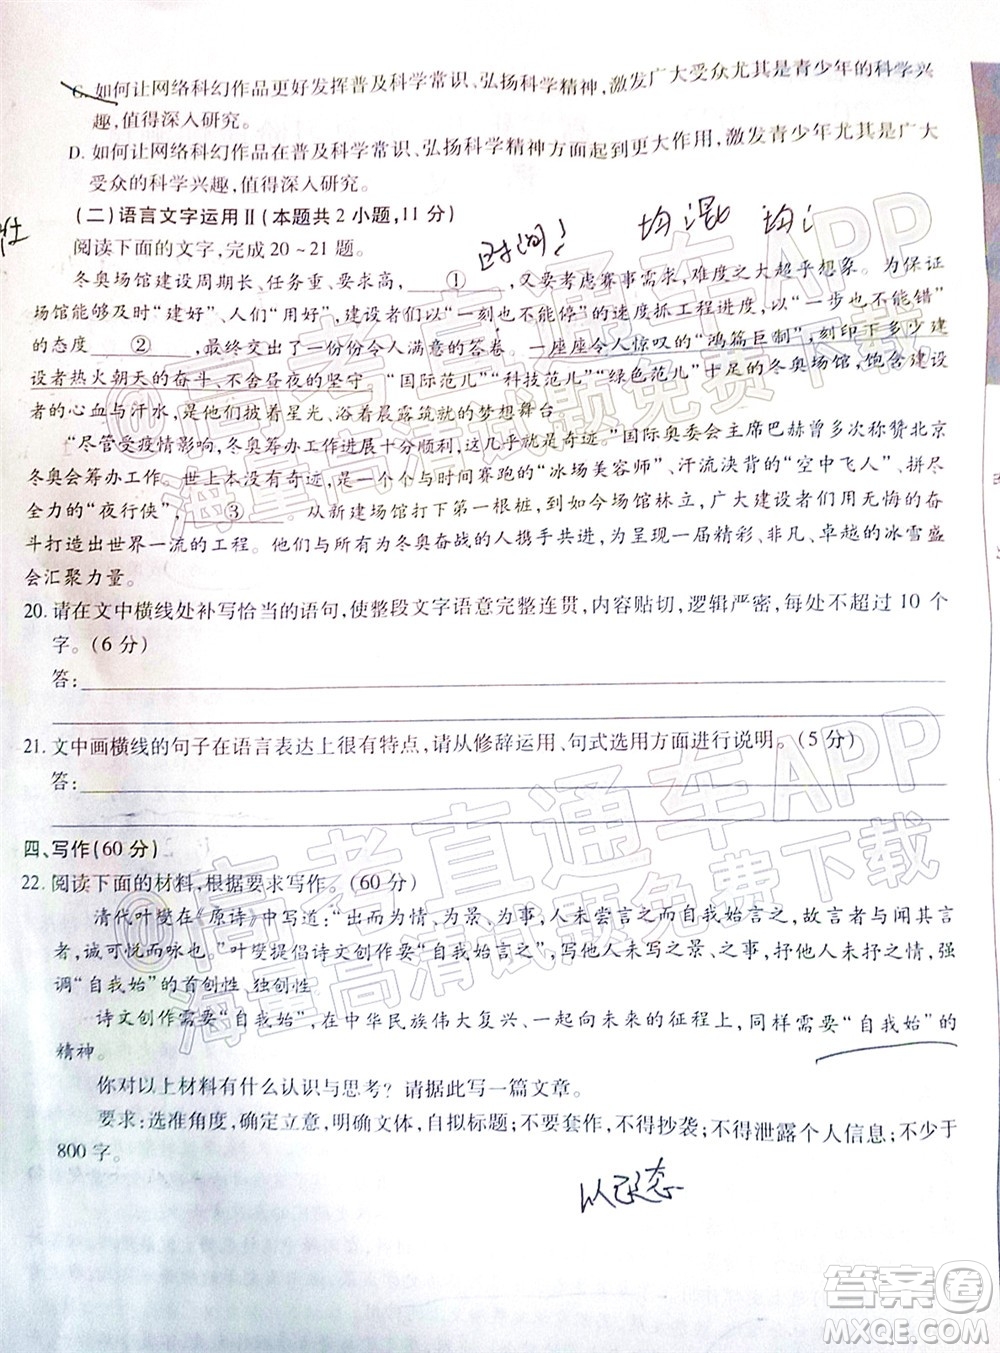 C. 如何让网络科幻作品更好发挥普及科学常识、弘扬科学精神,激发广大受众尤其是青少年的科学兴
趣,值得深入研究。
D. 如何让网络科幻作品在普及科学常识、弘扬科学精神方面起到更大作用,激发青少年尤其是广大
受众的科学兴趣,值得深入研究。
(二)语言文字运用Ⅱ(本题共2小题,11分)
阅读下面的文字,完成20~21题。
时间!
均 混 均
冬奥场馆建设周期长、任务重、要求高, ① ,又要考虑赛事需求,难度之大超乎想象。为保证
场馆能够及时“建好”、人们“用好”,建设者们以“一步也不能停”的速度抓工程进度,以“一步也不能错”
的态度 ② ,最终交出了一份份令人满意的答卷。一座座令人惊叹的“鸿篇巨制”,刻印下多少建
设者热火朝天的奋斗、昼夜的坚守。“国际范儿”“科技范儿”“绿色范儿”十足的冬奥场馆,饱含建设
者的心血与汗水,是他们披着星光、浴着晨露筑就的梦想舞台。
“尽管受疫情影响,冬奥筹办工作进展十分顺利,这几乎就是奇迹。”国际奥委会主席巴赫曾多次称赞北京
冬奥会筹办工作。世上没有奇迹,有的是与时间赛跑的“冰场美容师”、汗流浃背的“空中飞人”、拼尽
全力的“夜行侠”, ③ 。从新建场馆打下第一根桩,到如今场馆林立,广大建设者们用无悔的奋
斗打造出世界一流的工程。他们与所有为冬奥奋战的人携手共进,为呈现一届精彩、非凡、卓越的冰雪盛
会汇聚力量。
20. 请在文中横线处补写恰当的语句,使整段文字语意完整连贯,内容贴切,逻辑严密,每处不超过10个
字。(6分)
答:
21. 文中画横线的句子在语言表达上很有特点,请从修辞运用、句式选用方面进行说明。(5分)
答:
四、写作(60分)
22. 阅读下面的材料,根据要求写作。(60分)
清代叶燮在《原诗》中写道:“出而为情、为景、为事,人未尝言之而自我始言之,故言者与闻其言
者,诚可悦而咏也。”叶燮提倡诗文创作要“自我始言之”,写他人未写之景、之事,抒他人未抒之情,强
调“自我始”的首创性、独创性
诗文创作需要“自我始”,在中华民族伟大复兴、一起向未来的征程上,同样需要“自我始”的
精神。
你对以上材料有什么认识与思考?请据此写一篇文章。
要求:选准角度,确定立意,明确文体,自拟标题;不要套作,不得抄袭;不得泄露个人信息;不少于
800字。
@高考直通车APP
海量高清试题免费下载
@高考直通车APP
海量高清试题免费下载
答案卷
MXQE.COM